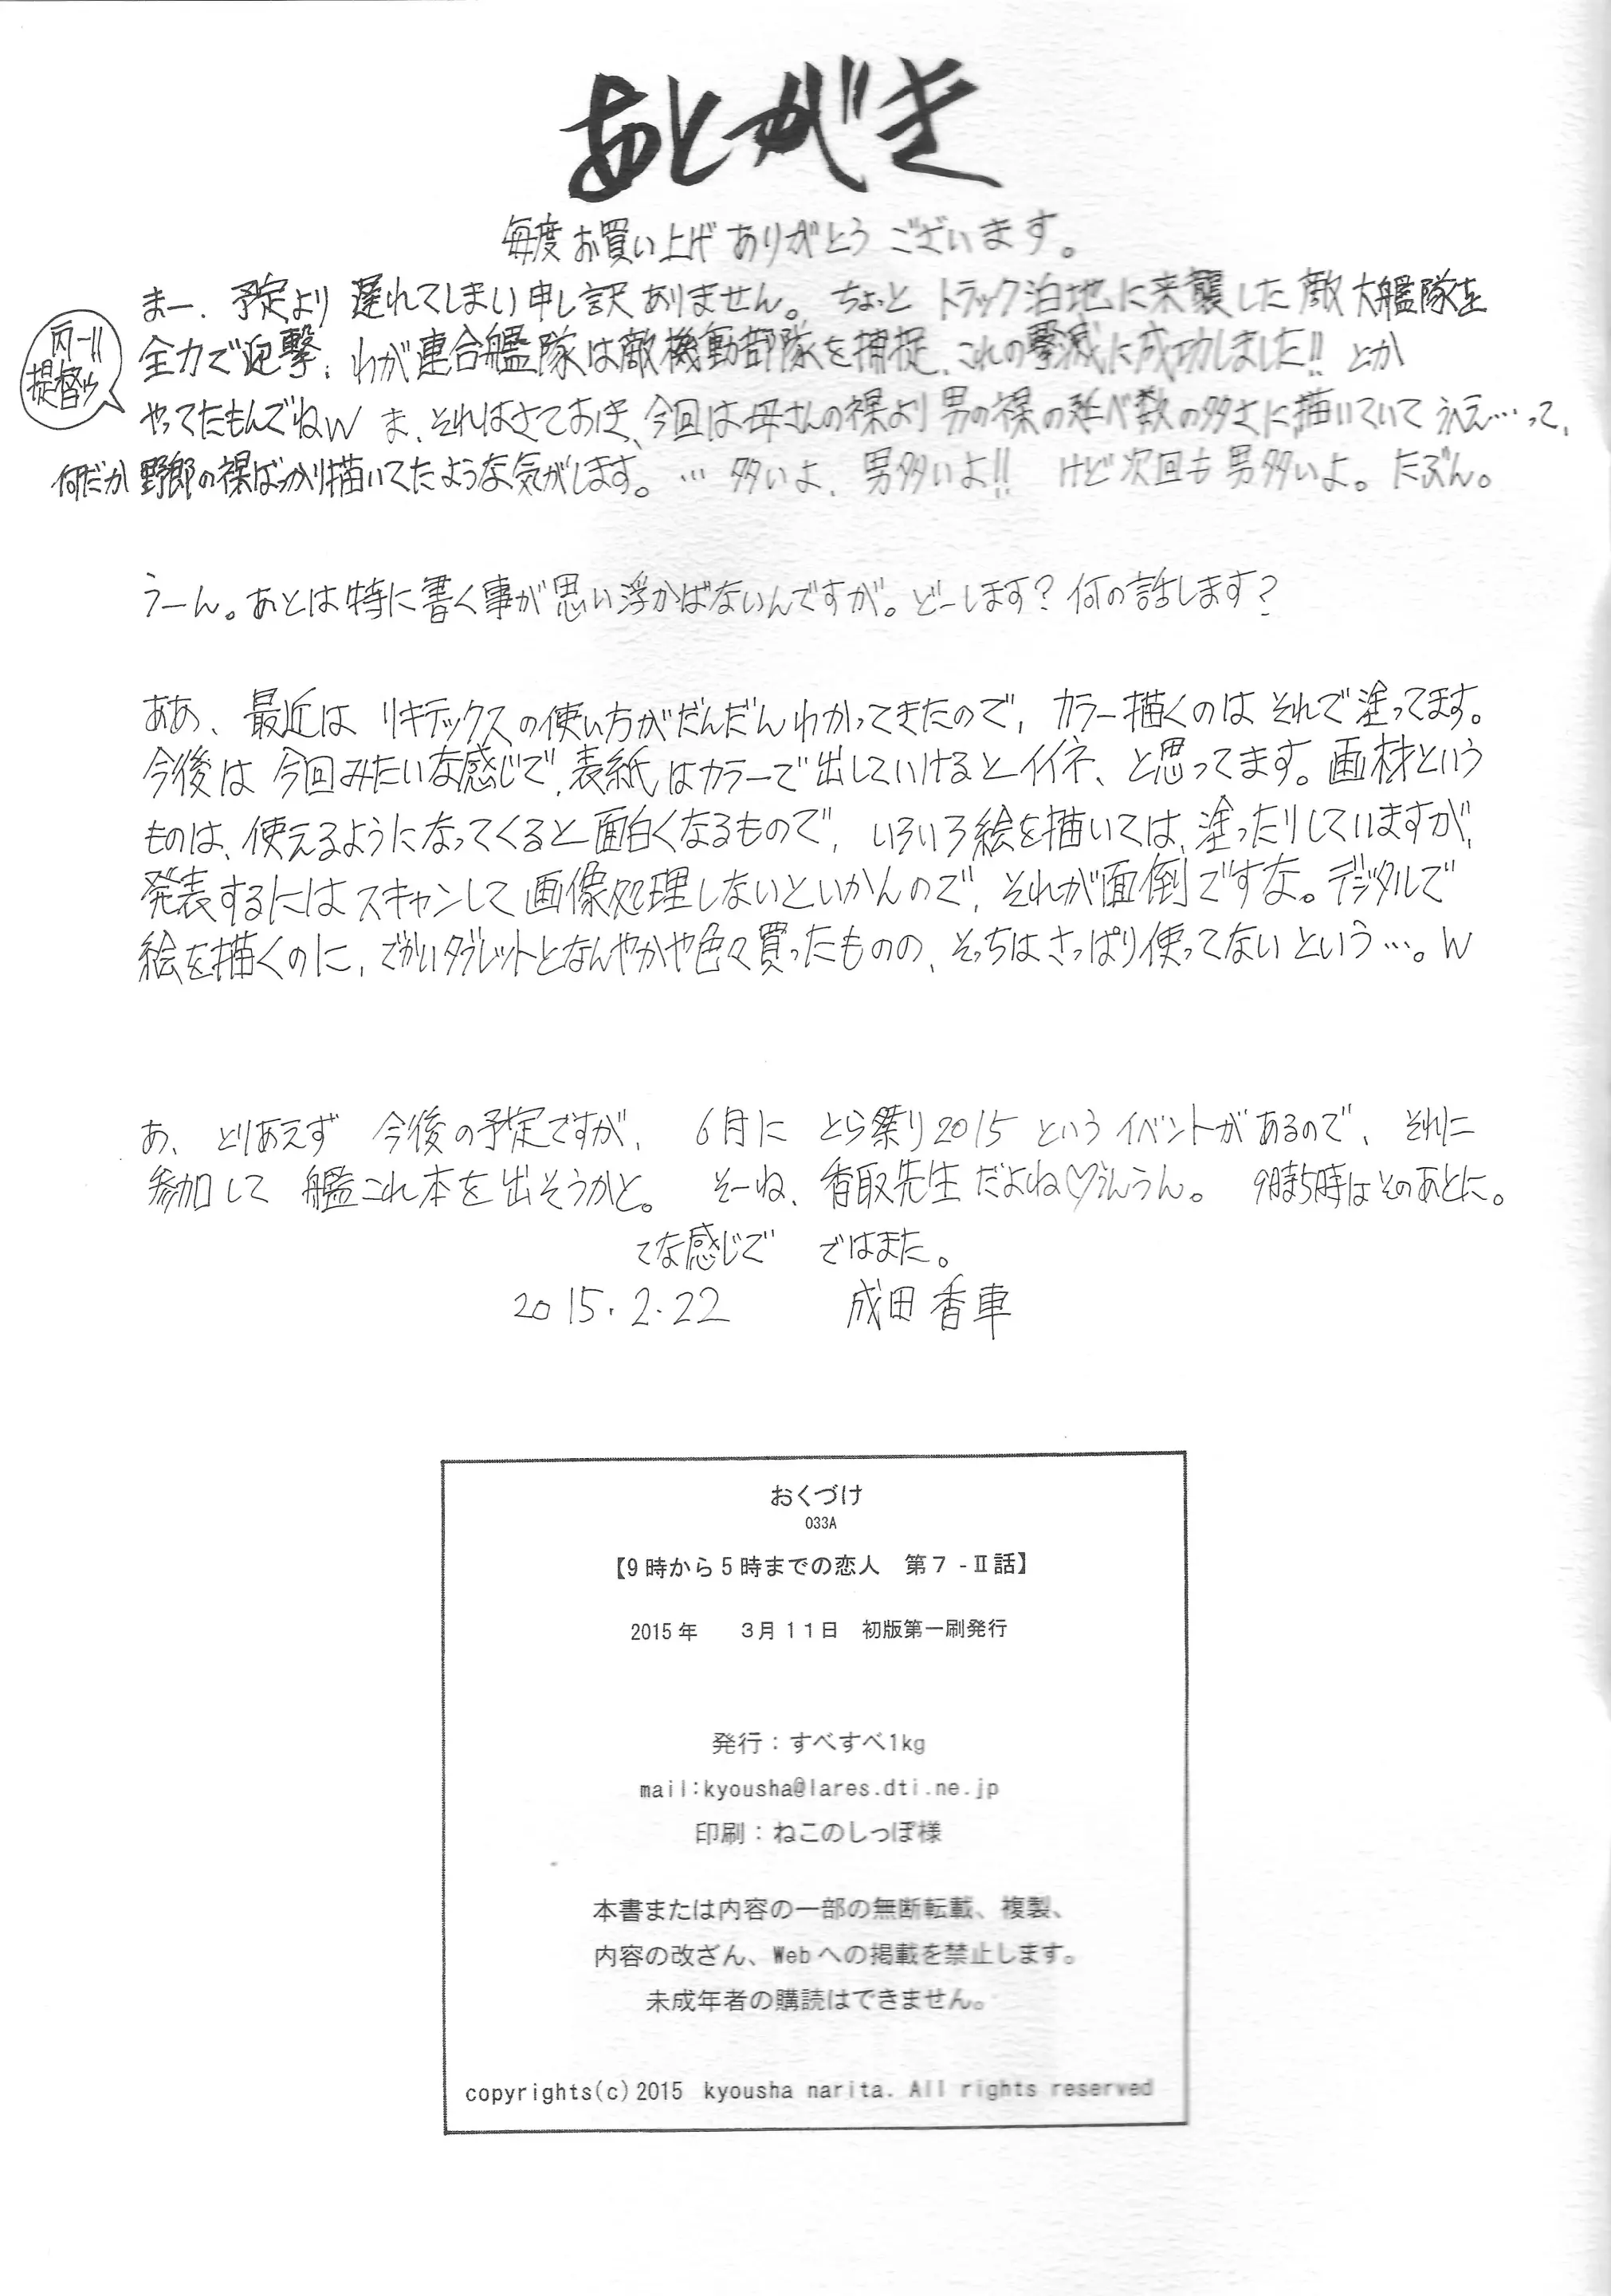 あとがき
毎度お買い上げありがとうございます。
まー、予定より遅れてしまい申し訳ありません。ちょっとトラック泊地に来襲した敵大艦隊を
全力で迎撃、わが連合艦隊は敵機動部隊を捕捉、これの撃滅に成功しました!!とか
提督ゥ
やってたもんでねw ま、それはさておき、今回は母さんの裸より男の裸の延べ数の多さに、描いていてうええ…って、
何だか野郎の裸ばっかり描いてたような気がします。…多いよ、男多いよ!! けど次回も男多いよ。たぶん。
うーん。あとは特に書く事が思い浮かばないんですが。どーします?何の話します?
ああ、最近はリキテックスの使い方がだんだんわかってきたので、カラー描くのはそれで塗ってます。
今後は今回みたいな感じで、表紙はカラーで出していけるとイイネ、と思ってます。画材という
ものは、使えるようになってくると面白くなるもので、いろいろ絵を描いては、塗ったりしていますが、
発表するにはスキャンして画像処理しないといかんので、それが面倒ですな。デジタルで
絵を描くのに、でかいタブレットとなんやかや色々買ったものの、そっちはさっぱり使ってないという…。w
あ、とりあえず 今後の予定ですが、 6月に とら祭り2015 というイベントがあるので、それに
参加して 艦これ本を出そうかと。 そーね、香取先生だよね♡うんうん。 9時5時はそのあとに。
てな感じで ではまた。
2015.2.22 成田香車
おくづけ
033A
【9時から5時までの恋人 第7-Ⅱ話】
2015年 3月11日 初版第一刷発行
発行：すべすべ1kg
mail:kyousha@lares.dti.ne.jp
印刷：ねこのしっぽ様
本書または内容の一部の無断転載、複製、
内容の改ざん、Webへの掲載を禁止します。
未成年者の購読はできません。
copyrights(c)2015 kyousha narita. All rights reserved